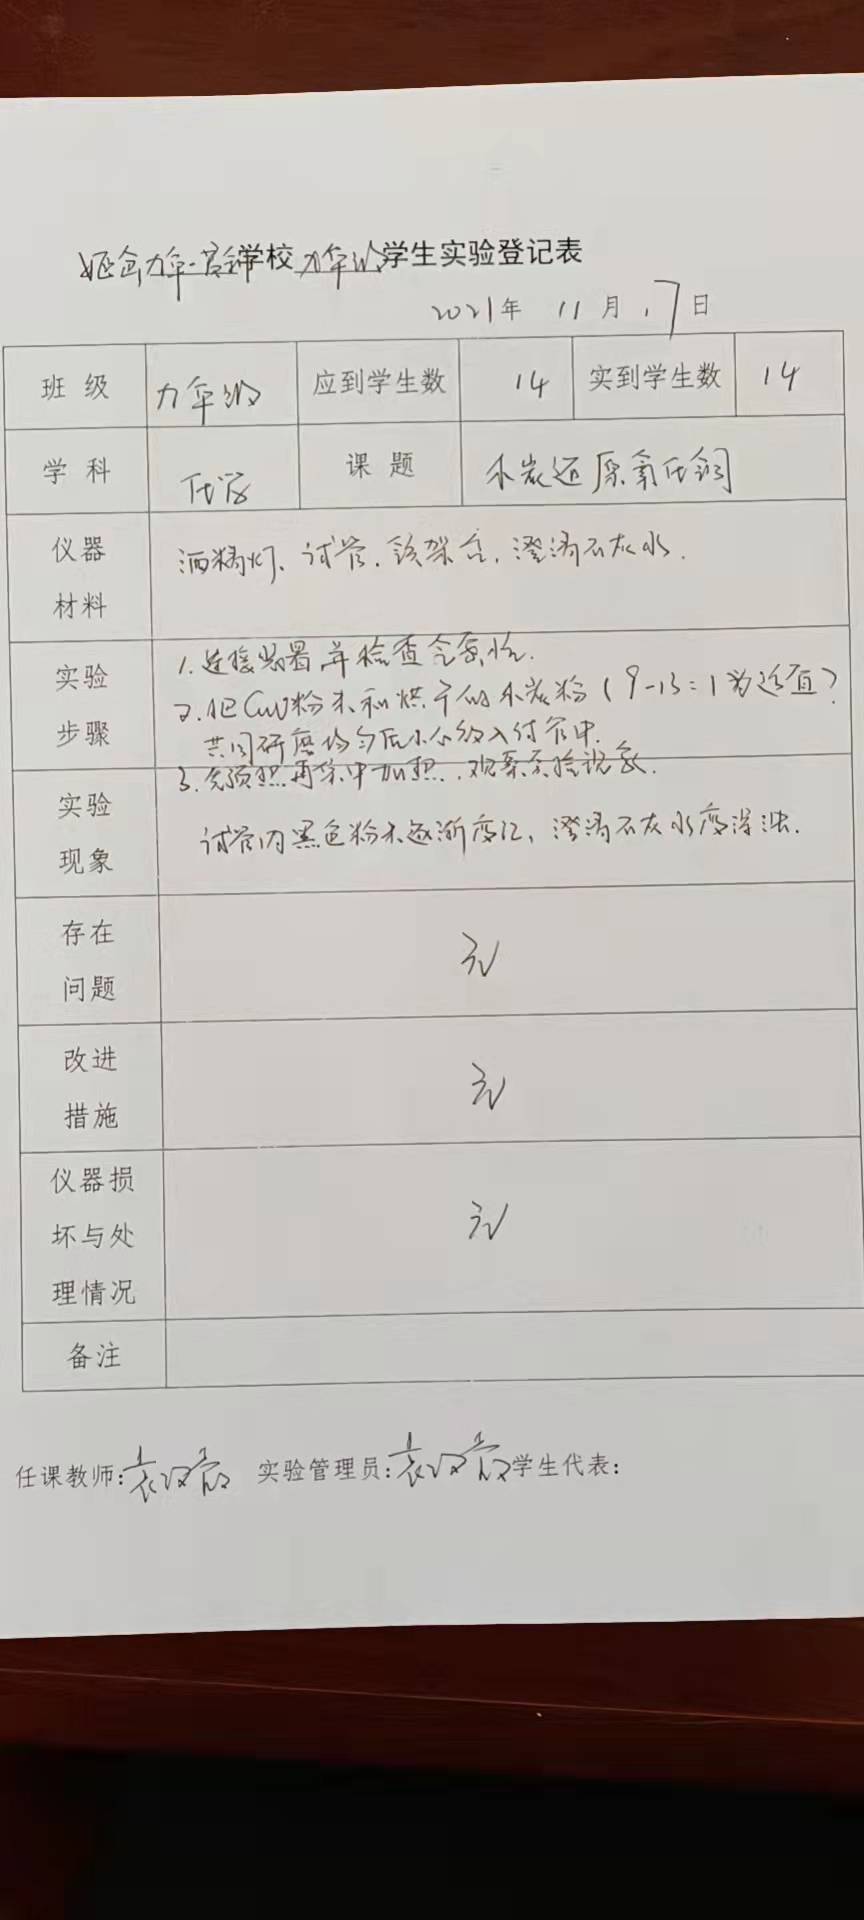 九年一贯制学校九年级学生实验登记表
2021年 11月17日
班级 九年级 应到学生数 14 实到学生数 14
学科 化学 课题 木炭还原氧化铜
仪器材料 酒精灯、试管、铁架台、澄清石灰水.
实验步骤 1.连接装置,并检查气密性.
2.把CuO粉末和烘干的木炭粉(9-13:1为适宜)
共同研磨均匀后小心放入试管中.
3.先预热再集中加热,观察实验现象.
实验现象 试管内黑色粉末逐渐变红,澄清石灰水变浑浊.
存在问题 无
改进措施 无
仪器损坏与处理情况 无
备注
任课教师: 实验管理员: 学生代表: